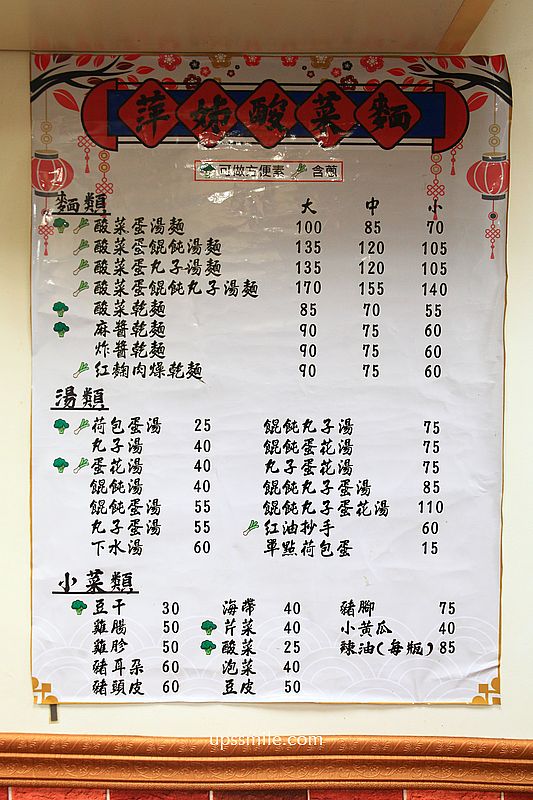 萍姊酸菜麵
可做方便素 含蔥
麵類 大 中 小
酸菜蛋湯麵 100 85 70
酸菜蛋餛飩湯麵 135 120 105
酸菜蛋丸子湯麵 135 120 105
酸菜蛋餛飩丸子湯麵 170 155 140
酸菜乾麵 85 70 55
麻醬乾麵 90 75 60
炸醬乾麵 90 75 60
紅麴肉燥乾麵 90 75 60
湯類
荷包蛋湯 25 餛飩丸子湯 75
丸子湯 40 餛飩蛋花湯 75
蛋花湯 40 丸子蛋花湯 75
餛飩湯 40 餛飩丸子蛋湯 85
餛飩蛋湯 55 餛飩丸子蛋花湯 110
丸子蛋湯 55 紅油抄手 60
下水湯 60 單點荷包蛋 15
小菜類
豆干 30 海帶 40 豬腳 75
雞腸 50 芹菜 40 小黃瓜 40
雞胗 50 酸菜 25 辣油(每瓶) 85
豬耳朵 60 泡菜 40
豬頭皮 60 豆皮 50
upssmile.com